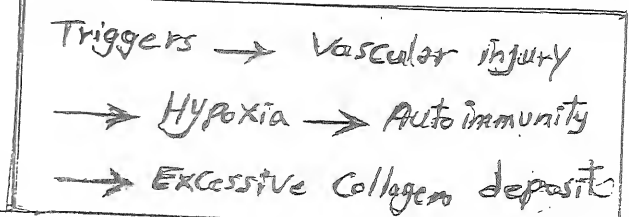 Triggers → Vascular injury
→ Hypoxia → Autoimmunity
→ Excessive Collagen deposit